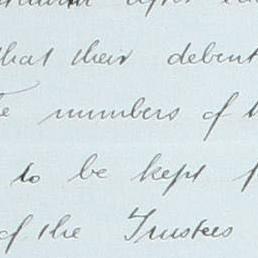 after
that their debent
numbers of t
to be kept f
of the Trustees